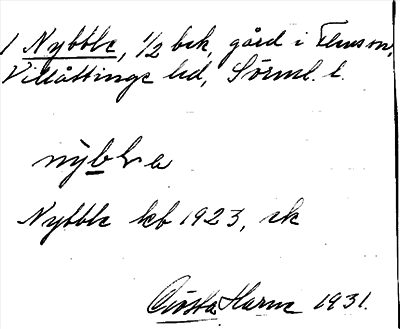 1 Nybble, 1/2 bek, gård i Flens sn,
Villåttinge hd, Sörml. l.
nỳbla
Nybble kb 1923, ek
Gösta Harne 1931.